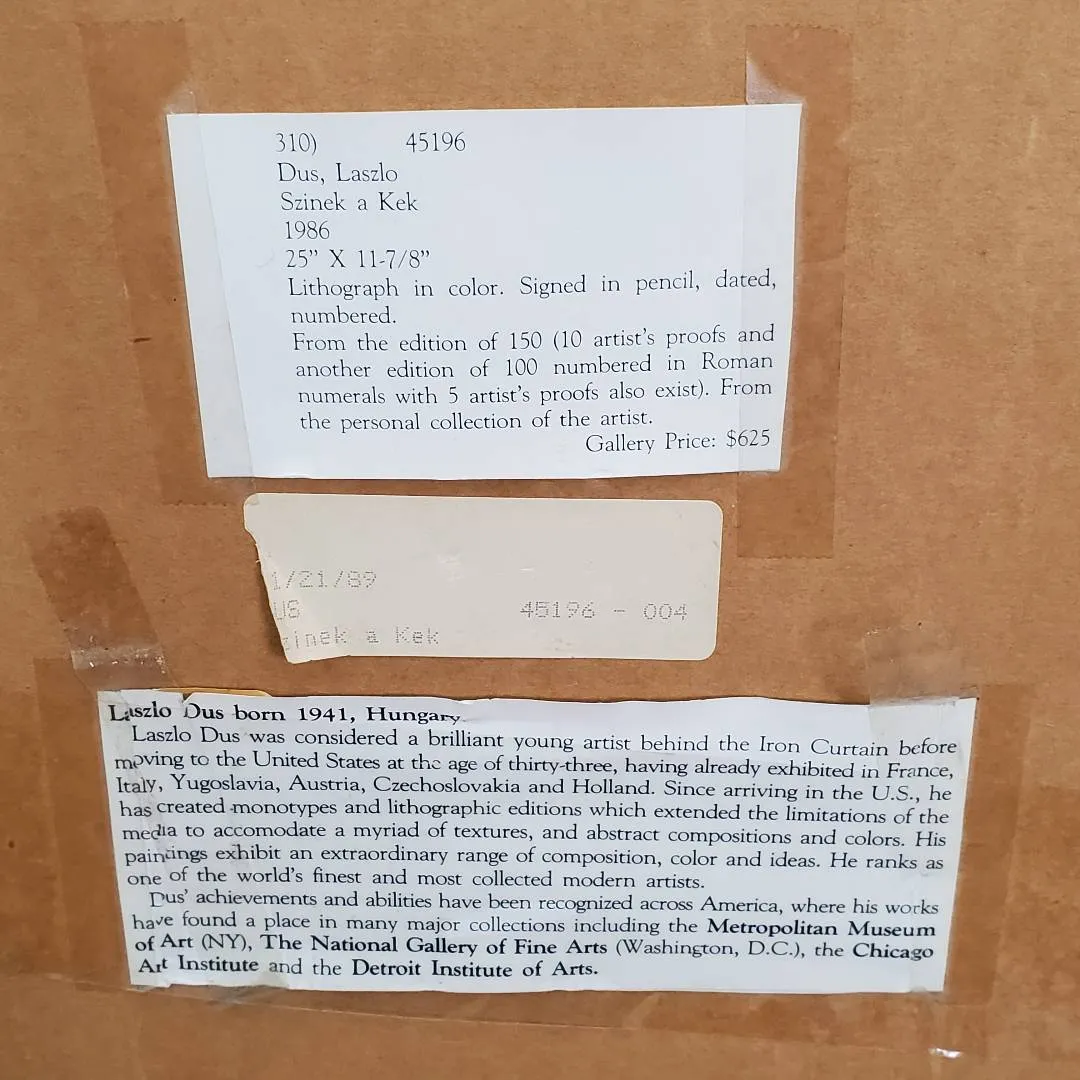 310) 45196
Dus, Laszlo
Szinek a Kek
1986
25” X 11-7/8”
Lithograph in color. Signed in pencil, dated,
numbered.
From the edition of 150 (10 artist’s proofs and
another edition of 100 numbered in Roman
numerals with 5 artist’s proofs also exist). From
the personal collection of the artist.
Gallery Price: $625
1/21/89
US 45196 - 004
zinek a Kek
Laszlo Dus born 1941, Hungary.
Laszlo Dus was considered a brilliant young artist behind the Iron Curtain before
moving to the United States at the age of thirty-three, having already exhibited in France,
Italy, Yugoslavia, Austria, Czechoslovakia and Holland. Since arriving in the U.S., he
has created monotypes and lithographic editions which extended the limitations of the
media to accomodate a myriad of textures, and abstract compositions and colors. His
paintings exhibit an extraordinary range of composition, color and ideas. He ranks as
one of the world’s finest and most collected modern artists.
Dus’ achievements and abilities have been recognized across America, where his works
have found a place in many major collections including the Metropolitan Museum
of Art (NY), The National Gallery of Fine Arts (Washington, D.C.), the Chicago
Art Institute and the Detroit Institute of Arts.